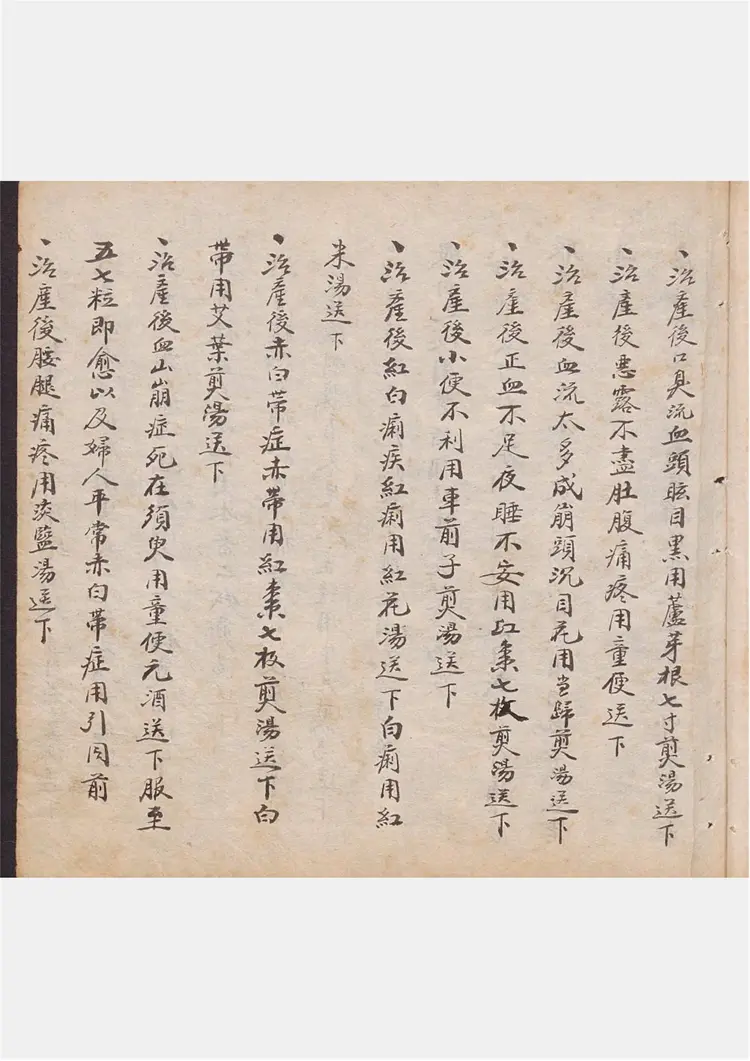 、治產後口臭流血頭眩目黑用蘆芽根七寸煎湯送下
、治產後惡露不盡肚腹痛疼用童便送下
、治產後血流太多成崩頭沉目花用当歸煎湯送下
、治產後正血不足夜睡不安用红棗七枚煎湯送下
、治產後小便不利用車前子煎湯送下
、治產後紅白痢疾紅痢用紅花湯送下白痢用紅
米湯送下
、治產後赤白帶症赤帶用紅棗七枚煎湯送下白
帶用艾葉煎湯送下
、治產後血山崩症死在須臾用童便元酒送下服至
五七粒即愈以及婦人平常赤白帶症用引同前
、治產後腰腿痛疼用淡鹽湯送下